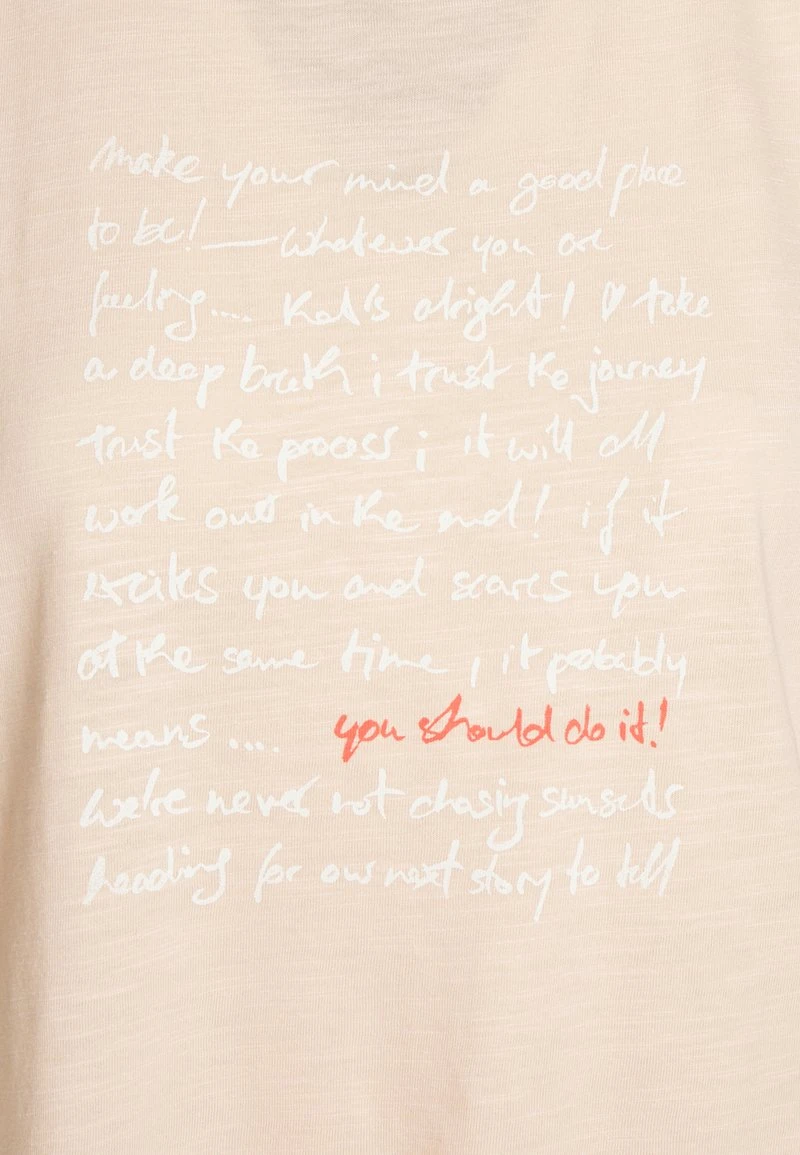 make your mind a good place
to be! — whatever you are
feeling.... that's alright! ♡ take
a deep breath ; trust the journey
trust the process ; it will all
work out in the end! if it
excites you and scares you
at the same time , it probably
means .... you should do it!
we're never not chasing sunsets
heading for our next story to tell